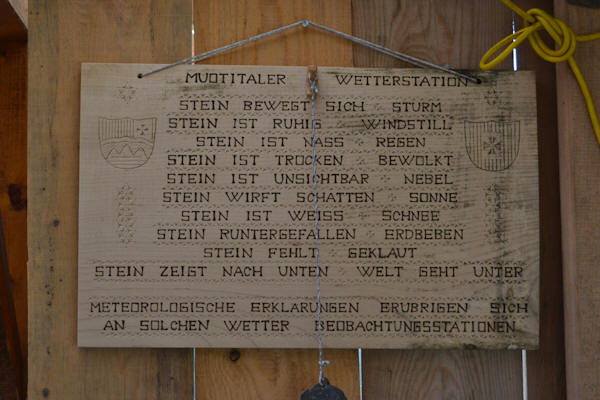 MUOTITALER WETTERSTATION
STEIN BEWEGT SICH ÷ STURM
STEIN IST RUHIG ÷ WINDSTILL
STEIN IST NASS ÷ REGEN
STEIN IST TROCKEN ÷ BEWOLKT
STEIN IST UNSICHTBAR ÷ NEBEL
STEIN WIRFT SCHATTEN ÷ SONNE
STEIN IST WEISS ÷ SCHNEE
STEIN RUNTERGEFALLEN ÷ ERDBEBEN
STEIN FEHLT ÷ GEKLAUT
STEIN ZEIGT NACH UNTEN ÷ WELT GEHT UNTER
METEOROLOGISCHE ERKLARUNGEN ERUBRIGEN SICH
AN SOLCHEN WETTER BEOBACHTUNGSSTATIONEN